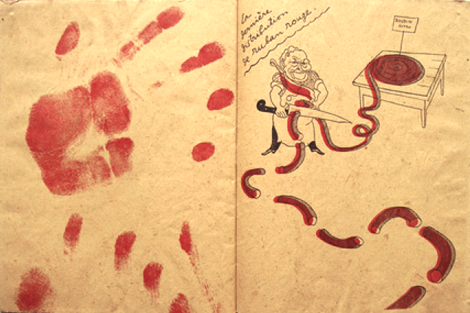 La
dernière
distribution
de ruban rouge.
BOUDIN